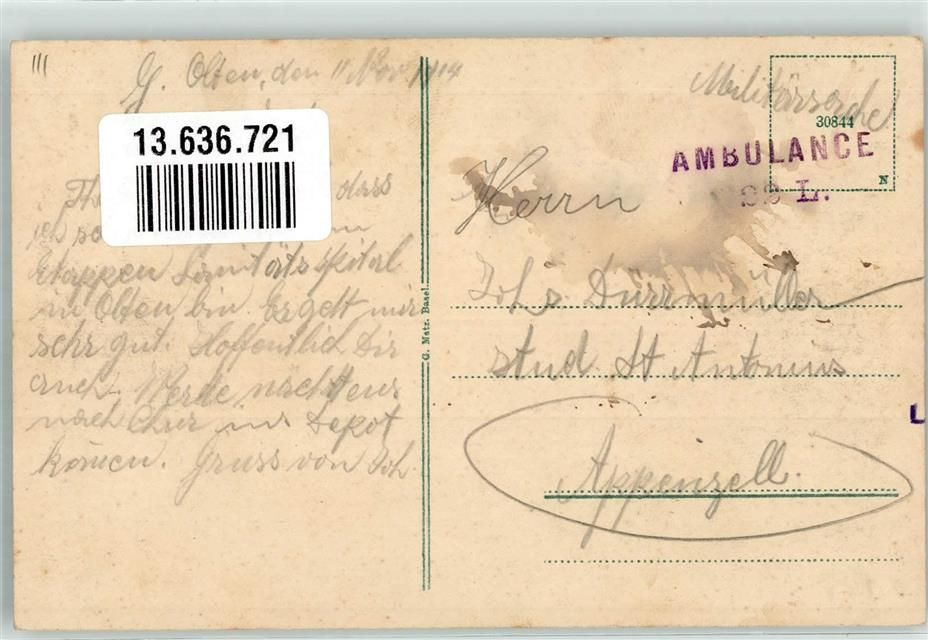 G. Olten, den 11 Nov. 1914
13.636.721
dass
ich
Etappen Sanitätsspital
in Olten bin. Es geht mir
sehr gut. Hoffentlich Dir
auch. Werde nächstens
nach Chur ins Depot
kommen. Gruss von Joh.
G. Metz, Basel.
Militärsache
30844
AMBULANCE
L.
N
Herrn
Joh. Dürrmüller
stud. St Antonius
Appenzell.
L